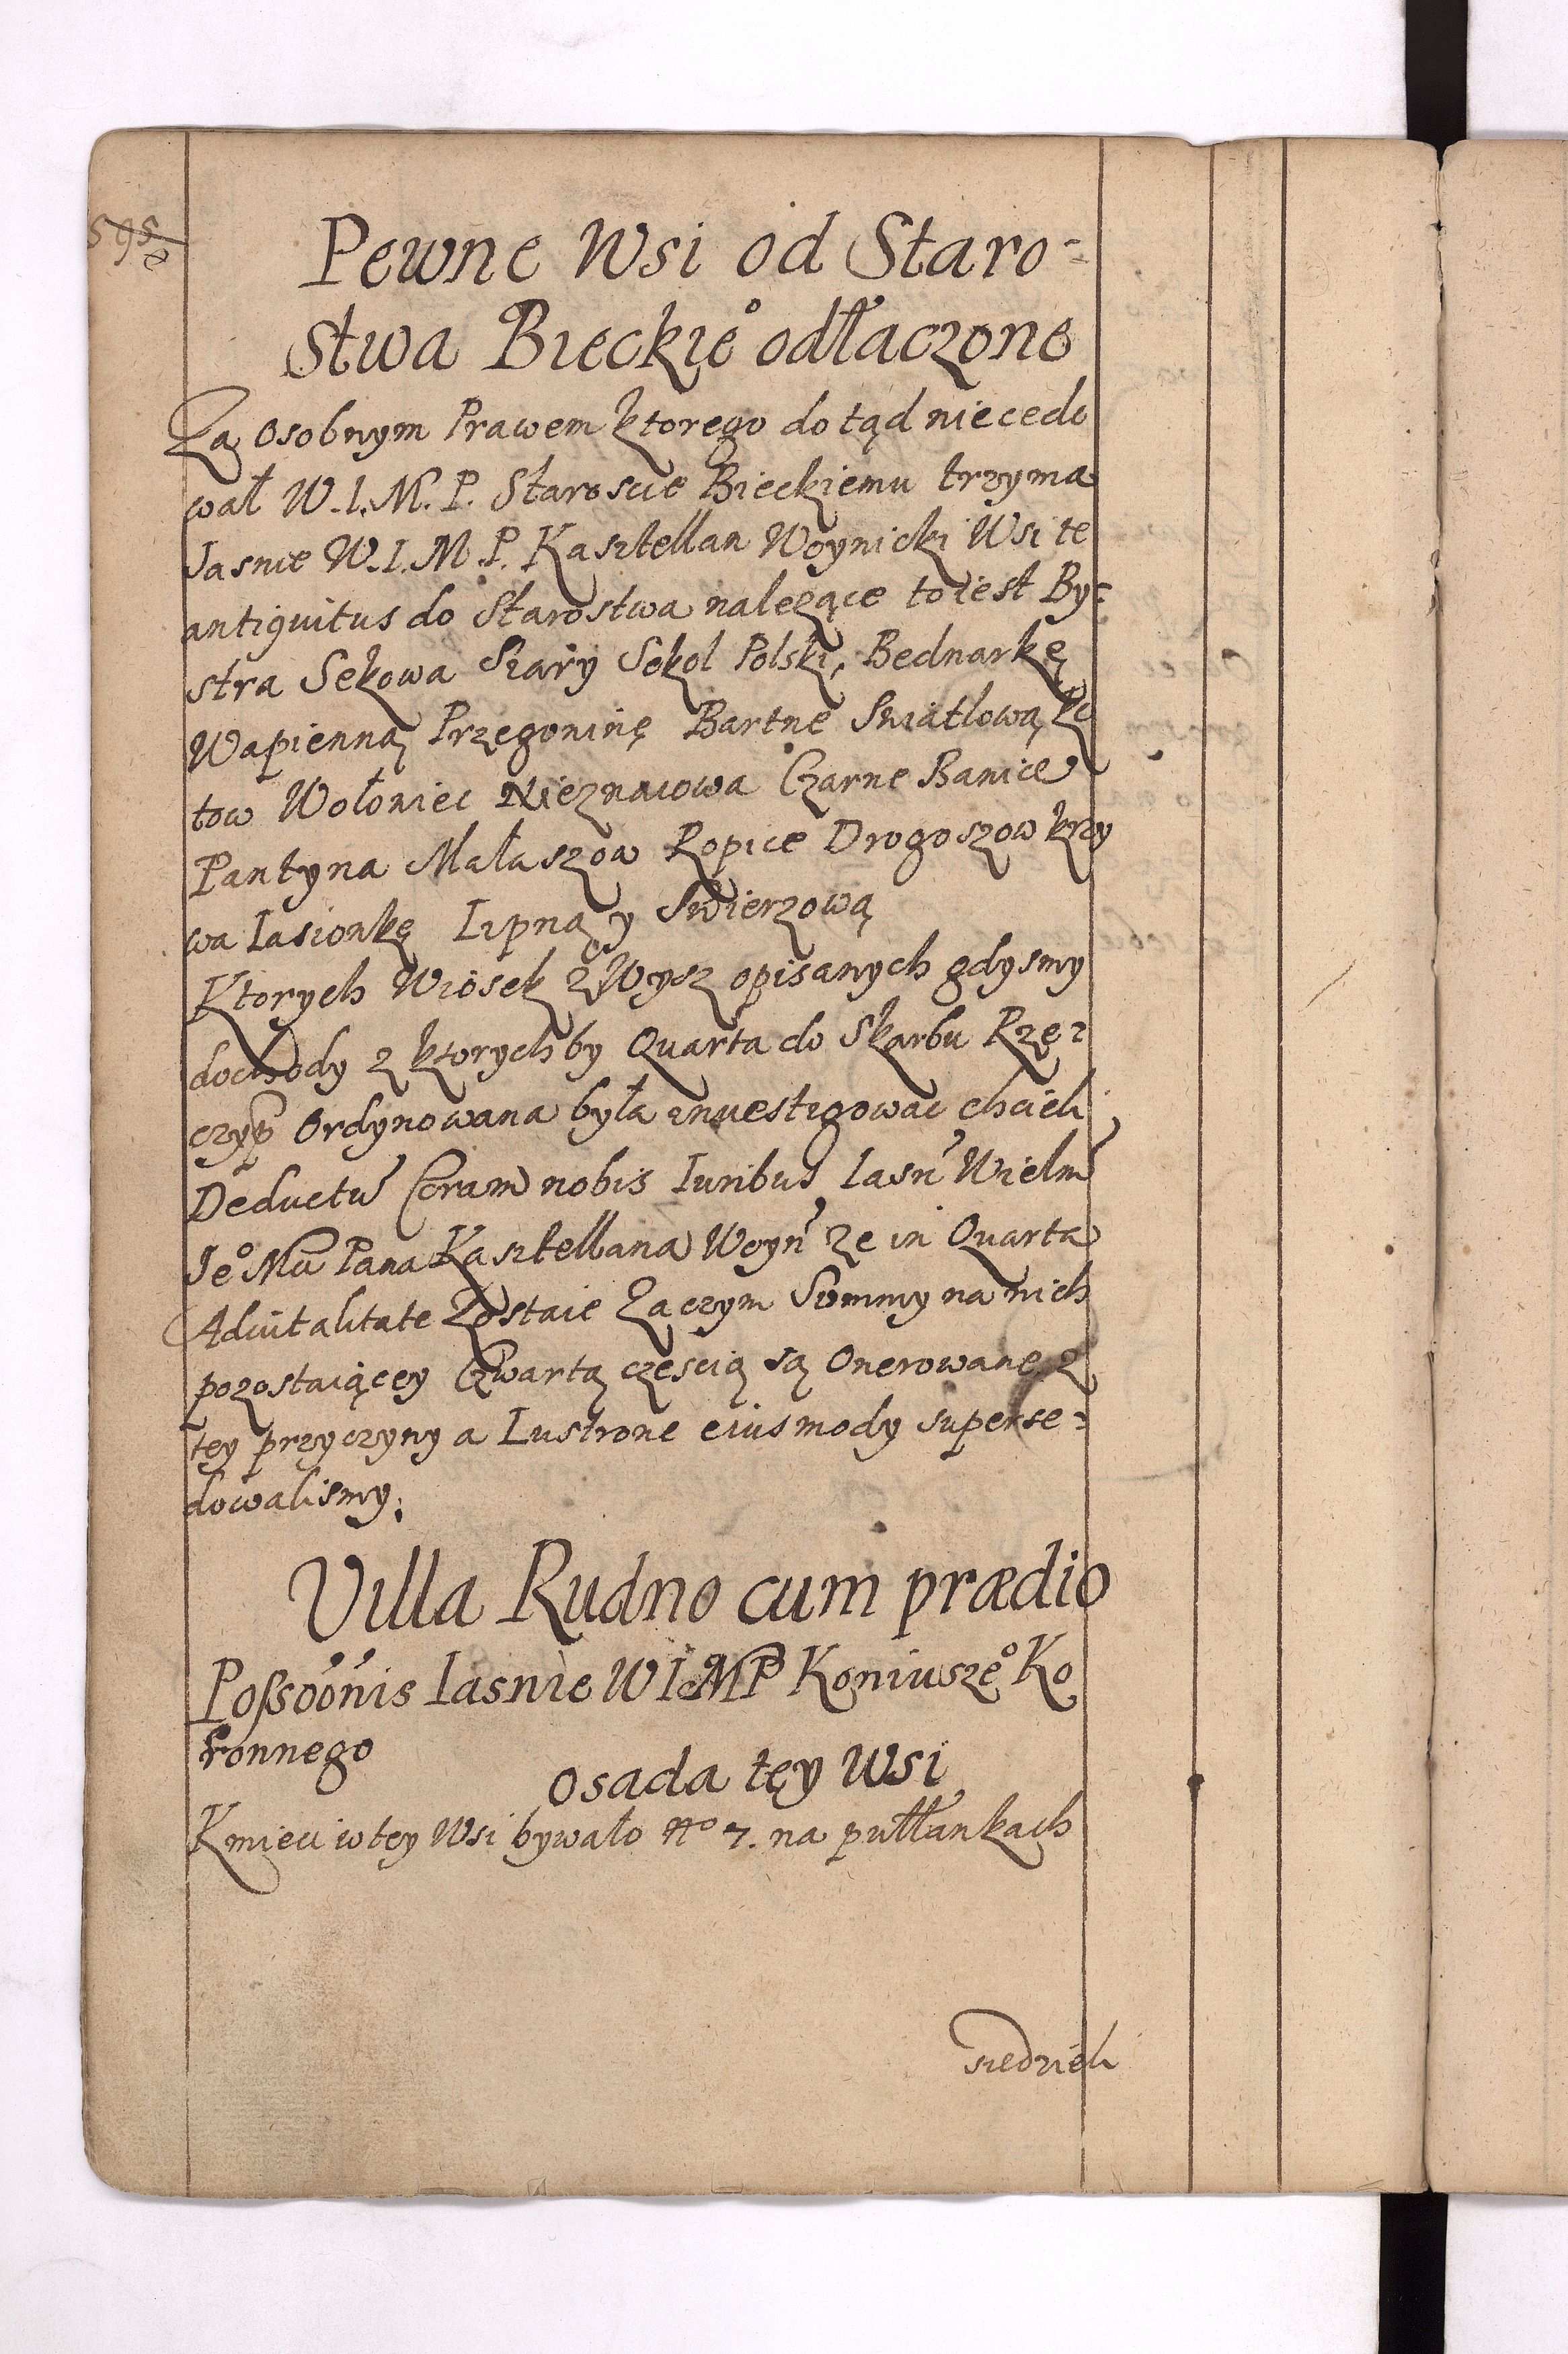 595
Pewne Wsi od Staro-
stwa Bieckie° odłaczone
Za Osobnym Prawem ktorego do tąd niecedo
wał W.I.M.P. Staroscie Bieckiemu trzyma
Jasnie W.I.M.P. Kasztellan Woynicki Wsi te
antiquitus do Starostwa nalezące to iest By=
stra Sekowa Szary Sekol Polski, Bednarkę
Wapienną Przegoninę Bartne Swiatlową
tow Wołoniec Nieznaiowa Czarne Banice
Pantyna Małaszow Ropice Drogoszow krzy
wa Iasionkę Lipną y Swierzową
Ktorych Wiosek zwysz opisanych gdysmy
dochody z ktorychby Quarta do Skarbu Rzę=
czyp Ordynowana była investigowac chcieli
Deductu Coram nobis Iuribus Iasn Wielm
Je° Mu Pana Kasztellana Woyn ze in Quarta
Advitalitate Zostaie Zaczym Summy na nich
pozostaiącey Czwartą częscią są Onerowane z
tey przyczyny a Lustrone eiusmody superse=
dowalismy.
Villa Rudno cum prædio
Poßsoonis Iasnie WIMP Koniusze° Ko
ronnego
osada tęy Wsi
Kmieci w tey Wsi bywało N° 7. na pułłankach
siedzieli